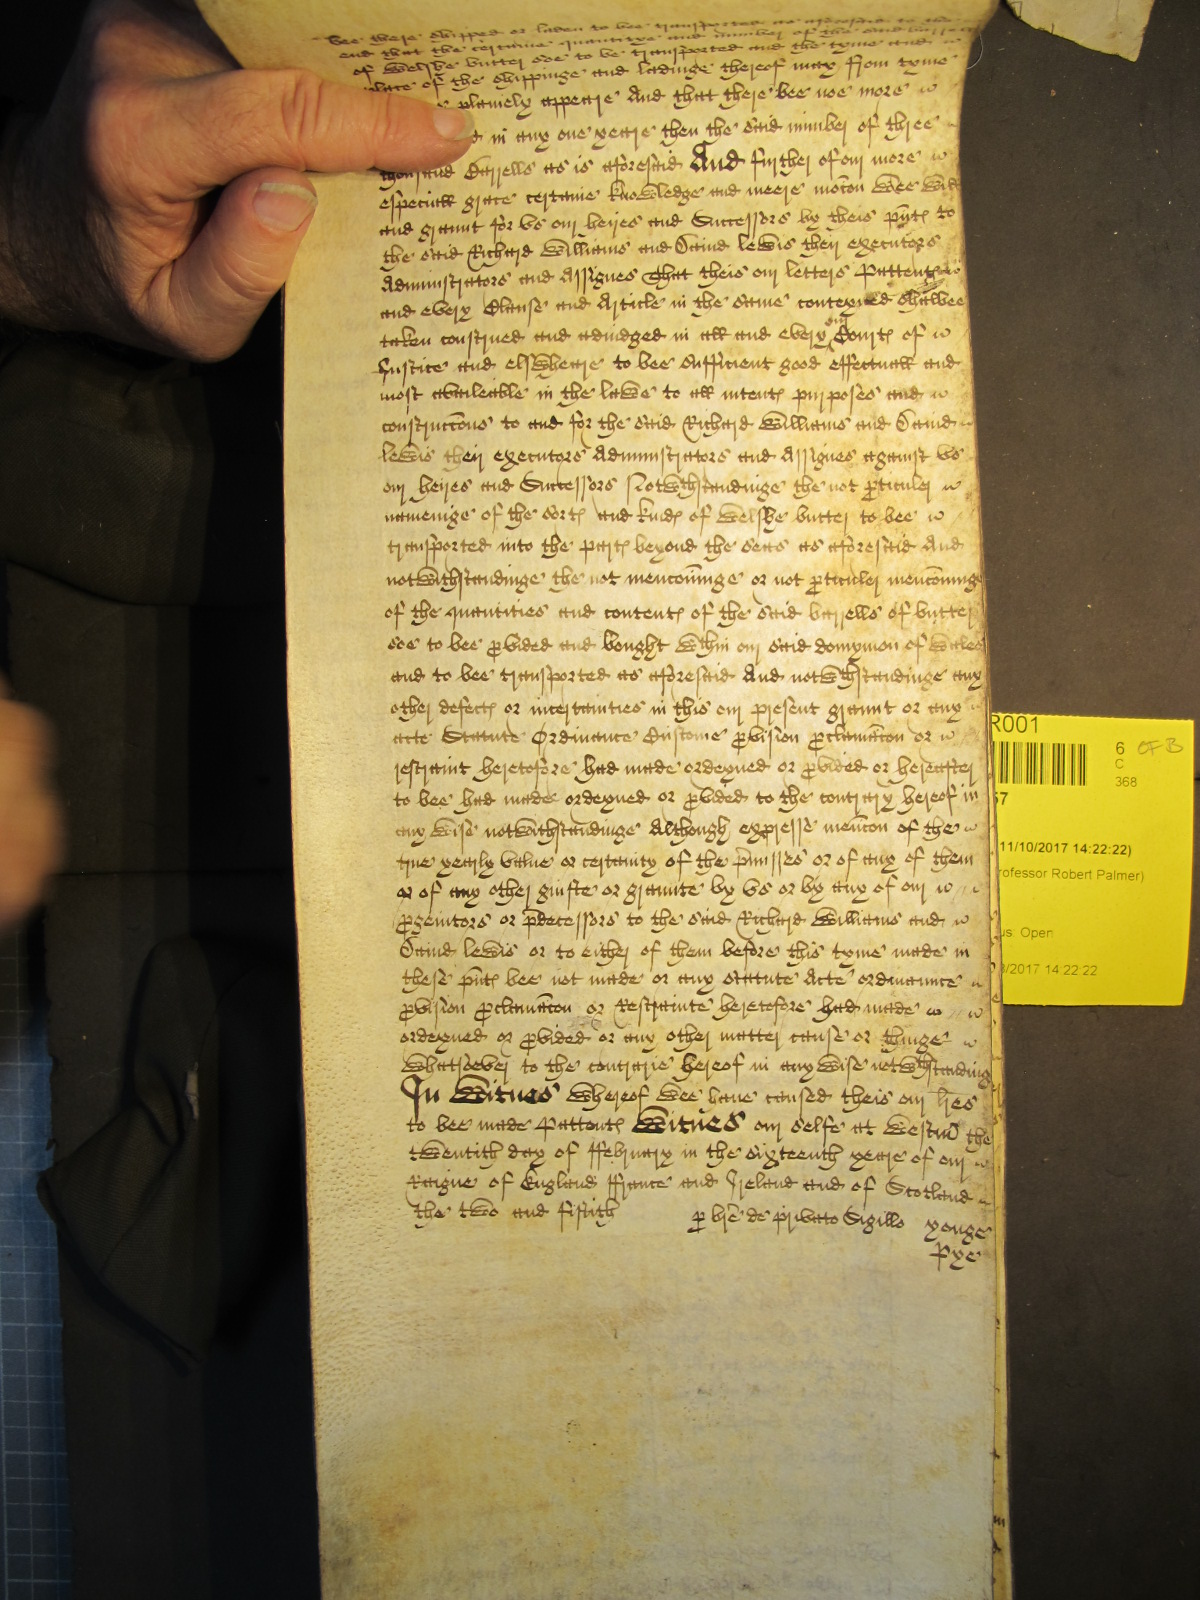 bee there shipped or laden to bee transported as aforesaid to the
end that the certaine quantitye and number of the said barrells
of Welshe butter soe to be transported and the tyme and
place of the shippinge and ladinge thereof may from tyme
plainely appeare And that there bee noe more
in any one yeare then the said number of three
thousand Barrells as is aforesaid And further of our more
especiall grace certaine knowledge and meere moc̃on Wee will
and graunt for vs our heires and Successors by theis pñts to
the said Richard Williams and Dauid lewis their executors
Administrators and Assignes That theis our letters Pattents
and every Clause and Article in the same conteyned shalbee
taken construed and adiudged in all and every our Courts of
Justice and elswheare to bee sufficient good effectuall and
most availeable in the lawe to all intents purposes and
construcc̃ons to and for the said Richard Williams and Dauid
lewis their executors Administrators and Assignes against vs
our heires and Successors Notwthstandinge the not p̱ticuler
nameinge of the sorts and kinds of Welshe butter to bee
transported into the parts beyond the seas as aforesaid And
notwithstandinge the not menc̃oninge or not p̱ticuler menc̃oninge
of the quantities and contents of the said barrells of butter
soe to bee p̱vided and bought wthin our said domynion of Wales
and to bee transported as aforesaid And notwthstandinge any
other defects or incertainties in this our present graunt or any
acte Statute Ordinance Custome p̱vision p̱clamac̃on or
restraint heretofore had made ordeyned or p̱vided or hereafter
to bee had made ordeyned or p̱vided to the contrary hereof in
any wise notwithstandinge Although expresse menc̃on of the
true yearly value or certainty of the p̃misses or of any of them
or of any other guifte or graunte by vs or by any of our
p̱genitors or p̃decessors to the said Richard Williams and
Dauid lewis or to either of them before this tyme made in
these pñts bee not made or any statute Acte ordinance
p̱vision p̱clamac̃on or Restrainte heretofore had made
ordeyned or p̱vided or any other matter cause or thinge
whatsoever to the contrarie hereof in any wise notwthstanding
In Witnes whereof wee haue caused theis our lr̃es
to bee made Pattents Witnes our selfe at Westm̃ the
twentith day of ffebruary in the sixteenth yeare of our
Raigne of England ffrance and Ireland and of Scotland
the two and fiftith p̱ br̃e de privato Sigillo yonge
Pye
R001
6 OF B
C
368
57
11/10/2017 14:22:22)
rofessor Robert Palmer)
us: Open
/2017 14:22:22